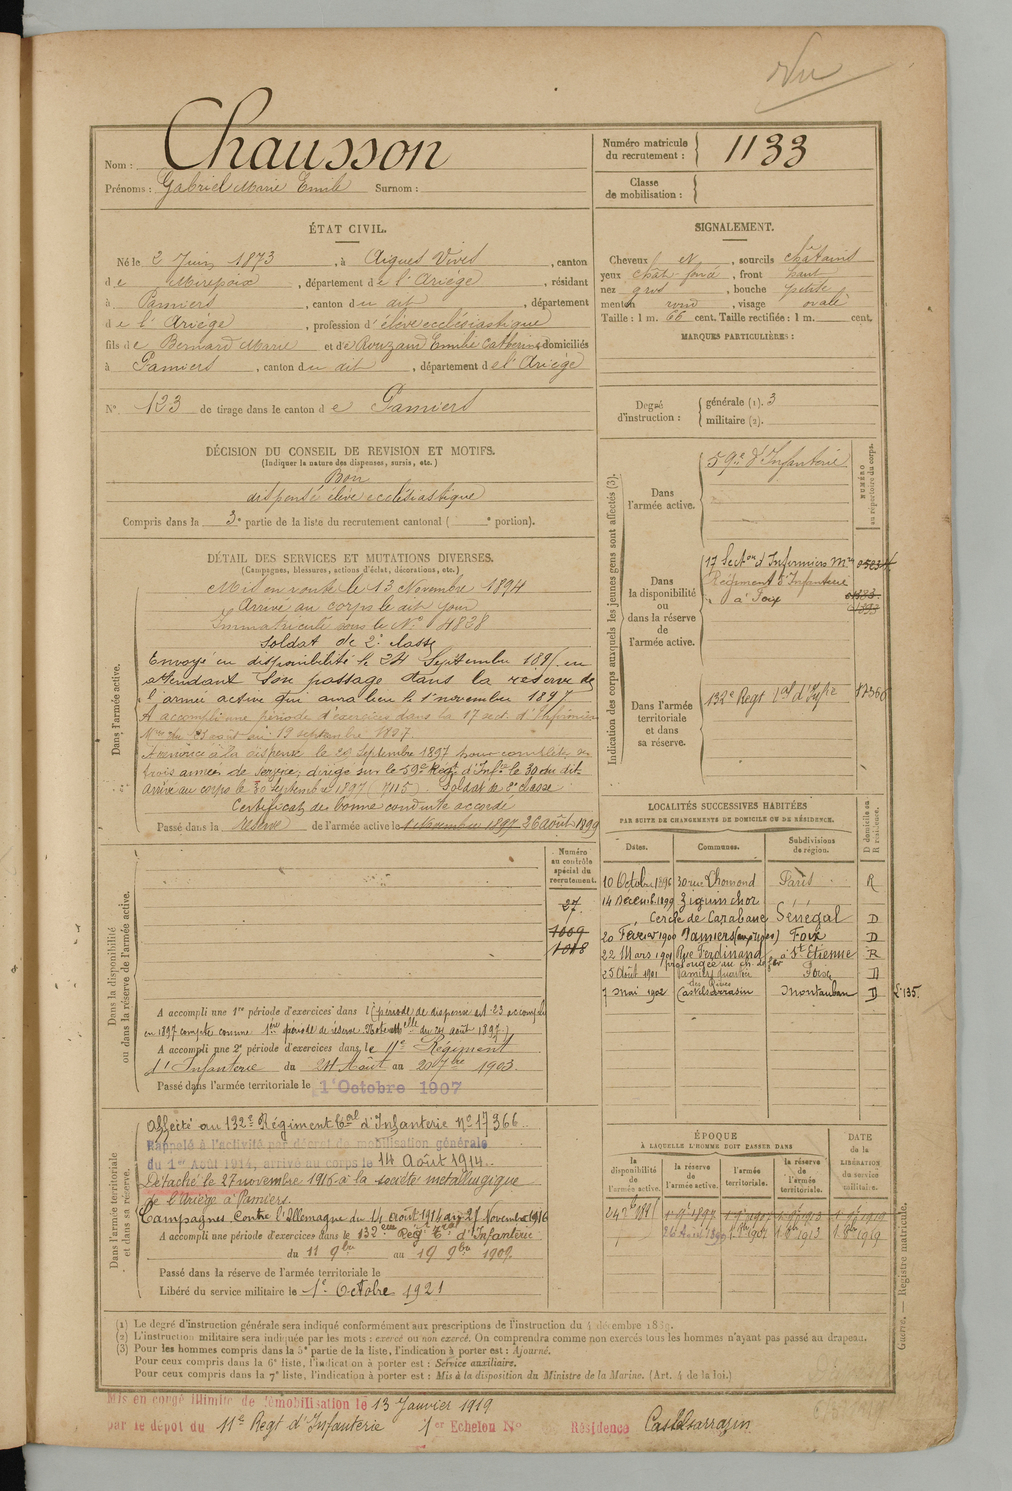 Vu
Nom : Chausson
Prénoms : Gabriel Marie Emile Surnom :
Numéro matricule du recrutement : 1133
Classe de mobilisation :
ÉTAT CIVIL.
Né le 2 Juin 1873, à Aigues Vives, canton
de Mirepoix, département de l'Ariége, résidant
à Pamiers, canton du dit, département
de l'Ariége, profession d'élève ecclésiastique
fils de Bernard Marie et de Rouzaud Emilie Catherine, domiciliés
à Pamiers, canton du dit, département de l'Ariége
N° 123 de tirage dans le canton de Pamiers
SIGNALEMENT.
Cheveux et, sourcils chatains
yeux chât. foncé, front haut
nez gros, bouche petite
menton rond, visage ovale
Taille : 1 m. 66 cent. Taille rectifiée : 1 m. cent.
MARQUES PARTICULIÈRES :
Degré d'instruction : générale (1). 3
militaire (2).
DÉCISION DU CONSEIL DE REVISION ET MOTIFS.
(Indiquer la nature des dispenses, sursis, etc.)
Bon
dispensé élève ecclésiastique
Compris dans la 3e partie de la liste du recrutement cantonal ( e portion).
DÉTAIL DES SERVICES ET MUTATIONS DIVERSES.
(Campagnes, blessures, actions d'éclat, décorations, etc.)
Dans l'armée active.
Mis en route le 13 Novembre 1894
Arrivé au corps le dit jour
Immatriculé sous le N° 4828
Soldat de 2e classe
Envoyé en disponibilité le 24 Septembre 1895 en
attendant son passage dans la réserve de
l'armée active qui aura lieu le 1er novembre 1897
A accompli une période d'exercices dans la 17 sect. d'Infirmiers
Mres du 23 août au 19 septembre 1897.
A renoncé à la dispense le 29 Septembre 1897 pour compléter ses
trois années de service; dirigé sur le 59e Regt d'Infie le 30 du dit.
Arrivé au corps le 30 septembre 1897 (7115). Soldat de 2e classe
Certificat de bonne conduite accordé
Passé dans la réserve de l'armée active le 1 Novembre 1897 26 août 1899
Indication des corps auxquels les jeunes gens sont affectés (3).
NUMÉRO au répertoire du corps.
Dans l'armée active.
59e d'Infanterie
Dans la disponibilité ou dans la réserve de l'armée active.
17 Secton d'Infirmiers Mres
Régiment d'Infanterie
à Foix
Dans l'armée territoriale et dans sa réserve.
132e Regt tal d'Infie 17366
LOCALITÉS SUCCESSIVES HABITÉES
PAR SUITE DE CHANGEMENTS DE DOMICILE OU DE RÉSIDENCE.
Dates. Communes. Subdivisions de région. D domicile ou R résidence.
10 Octobre 1896 30 rue Lhomond Paris R
14 Décemb 1899 Ziguinchor
Cercle de Carabane Sénégal D
20 Février 1900 Pamiers Foix D
22 Mars 1901 Rue Ferdinand à St Etienne R
prolongée au ch. de fer
25 Août 1901 Pamiers quartier Foix D
7 Mai 1902 Castelsarrasin Montauban D L' 135.
Dans la disponibilité ou dans la réserve de l'armée active.
Numéro au contrôle spécial du recrutement.
27
1009
1018
A accompli une 1re période d'exercices dans l (période de dispense art. 23 accomplie
en 1897 compte comme 1ère période de réserve. Note mlle du 24 août 1897)
A accompli une 2e période d'exercices dans le 11e Régiment
d'Infanterie du 24 Août au 20 7bre 1903.
Passé dans l'armée territoriale le 1er Octobre 1907
Dans l'armée territoriale et dans sa réserve.
Affecté au 132e Régiment tal d'Infanterie N° 17366.
Rappelé à l'activité par décret de mobilisation générale
du 1er Août 1914, arrivé au corps le 14 Août 1914.
Détaché le 27 novembre 1916 à la société métallurgique
de l'Ariège à Pamiers.
Campagnes Contre l'Allemagne du 14 août 1914 au 27 Novembre 1916
A accompli une période d'exercices dans le 132ème Régt tal d'Infanterie
du 11 9bre au 19 9bre 1909.
Passé dans la réserve de l'armée territoriale le
Libéré du service militaire le 1er Octobre 1921
ÉPOQUE
À LAQUELLE L'HOMME DOIT PASSER DANS
la disponibilité de l'armée active. la réserve de l'armée active. l'armée territoriale. la réserve de l'armée territoriale.
DATE de la LIBÉRATION du service militaire.
Guerre. — Registre matricule.
(1) Le degré d'instruction générale sera indiqué conformément aux prescriptions de l'instruction du 4 décembre 1889.
(2) L'instruction militaire sera indiquée par les mots : exercé ou non exercé. On comprendra comme non exercés tous les hommes n'ayant pas passé au drapeau.
(3) Pour les hommes compris dans la 5e partie de la liste, l'indication à porter est : Ajourné.
Pour ceux compris dans la 6e liste, l'indication à porter est : Service auxiliaire.
Pour ceux compris dans la 7e liste, l'indication à porter est : Mis à la disposition du Ministre de la Marine. (Art. 4 de la loi.)
Mis en congé illimité de démobilisation le 13 Janvier 1919
par le dépôt du 11e Regt d'Infanterie 1er Echelon N° Résidence Castelsarrasin